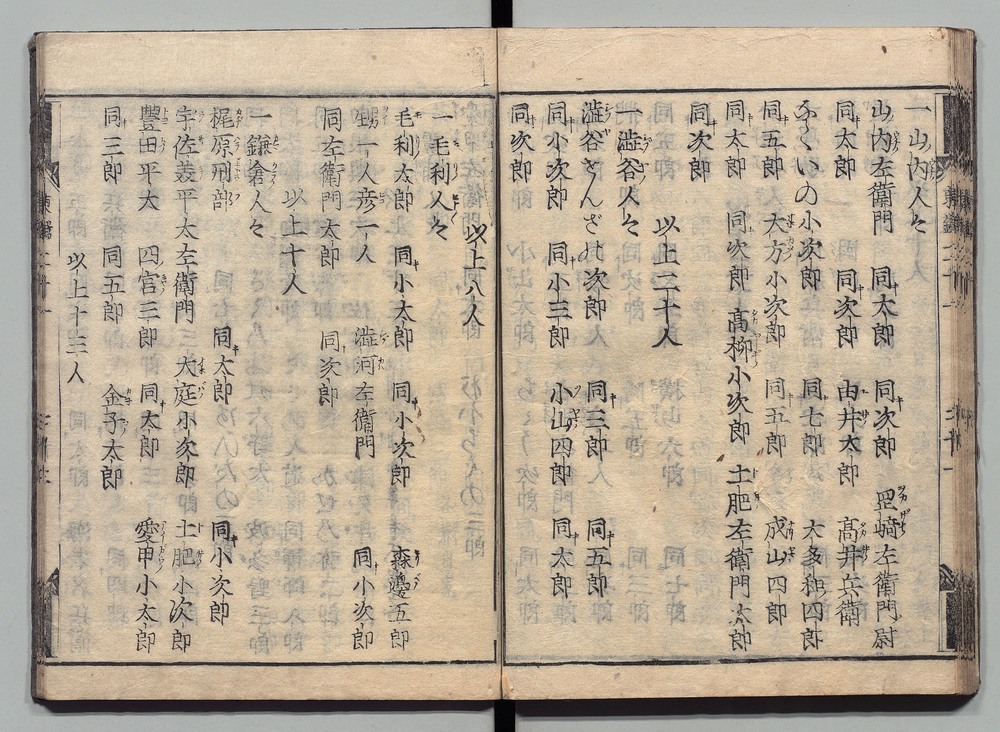 一山内人々
山内左衛門　同太郎　同次郎　罡崎左衛門尉
同太郎　同次郎　由井太郎　高井兵衛
ふくいの小次郎　同七郎　大多和四郎
同五郎　大方小次郎　同五郎　成山四郎
同太郎　同次郎　高柳小次郎　土肥左衛門太郎
同次郎
以上二十人
一澁谷人々
澁谷さんざ次郎　同三郎　同五郎
同小次郎　同小三郎　小山四郎　同太郎
同次郎
以上八人
一毛利人々
毛利太郎　同小太郎　同小次郎　森邊五郎
一人彦一人　澁河左衛門　同小次郎
同左衛門太郎　同次郎
以上十人
一鎌倉人々
梶原刑部　同太郎　同小次郎
宇佐美平太左衛門　大庭小次郎　土肥小次郎
豐田平太　四宮三郎　同太郎　愛甲小太郎
同三郎　同五郎　金子太郎
以上十三人